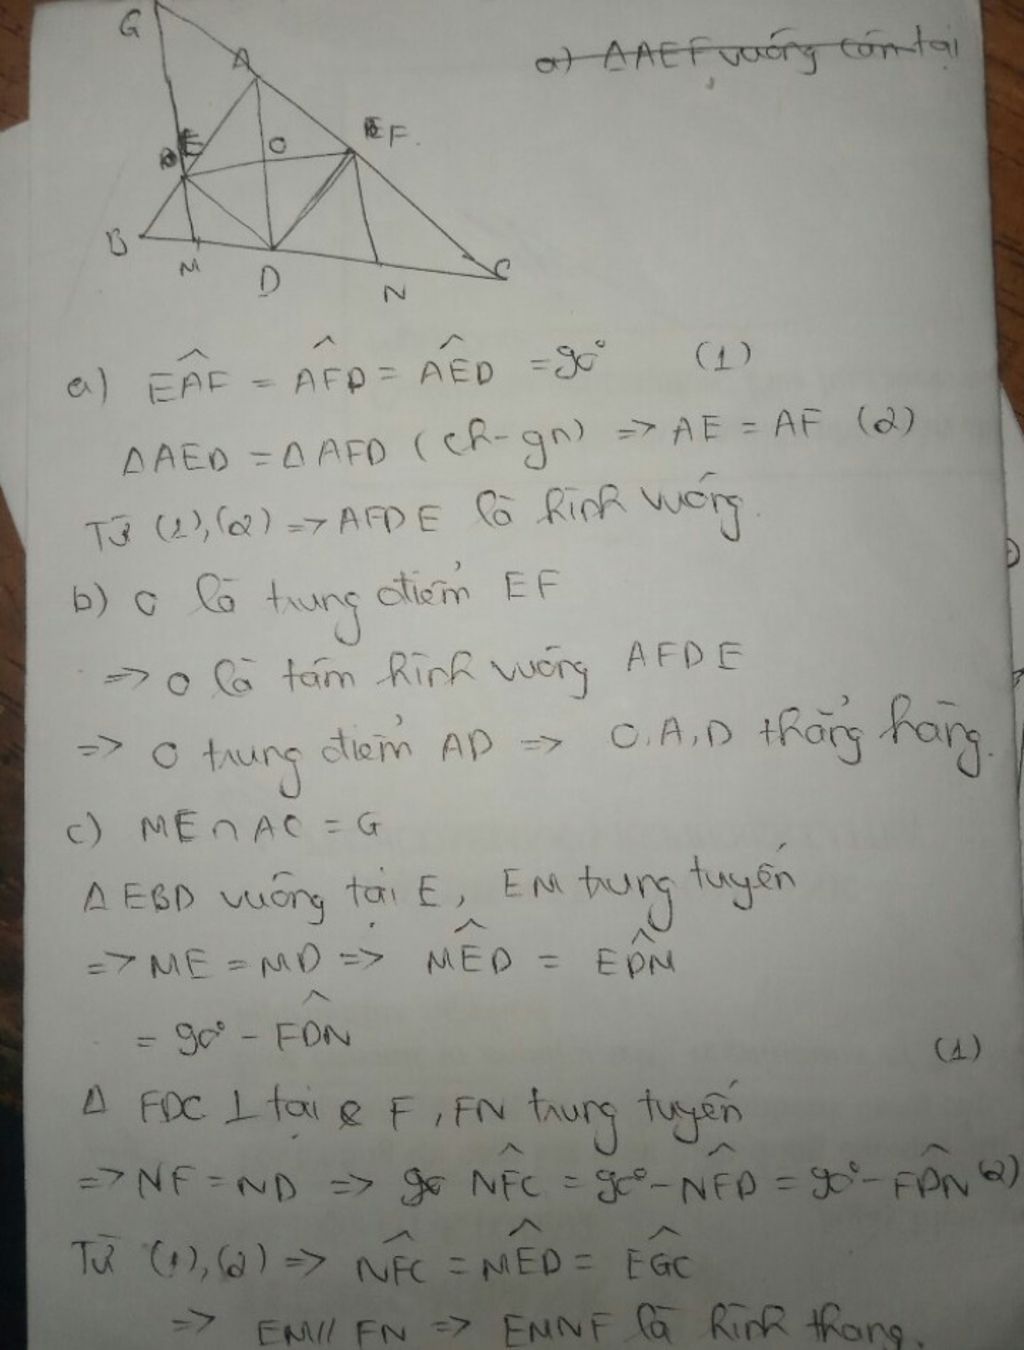 G
A
a) ΔAEF vuông cân tại
E
O
F
B
M
D
N
C
a) EÂF = AF̂D = AÊD = 90° (1)
ΔAED = ΔAFD (ch-gn) => AE = AF (2)
Từ (1), (2) => AFDE là hình vuông.
b) O là trung điểm EF
=> O là tâm hình vuông AFDE
=> O trung điểm AD => O,A,D thẳng hàng.
c) ME ∩ AC = G
Δ EBD vuông tại E, EM trung tuyến
=> ME = MD => MÊD = ED̂M
= 90° - FD̂N (1)
Δ FDC ⊥ tại F, FN trung tuyến
=> NF = ND => NF̂C = 90° - NF̂D = 90° - FD̂N (2)
Từ (1), (2) => NF̂C = MÊD = EĜC
=> EM // FN => EMNF là hình thang.